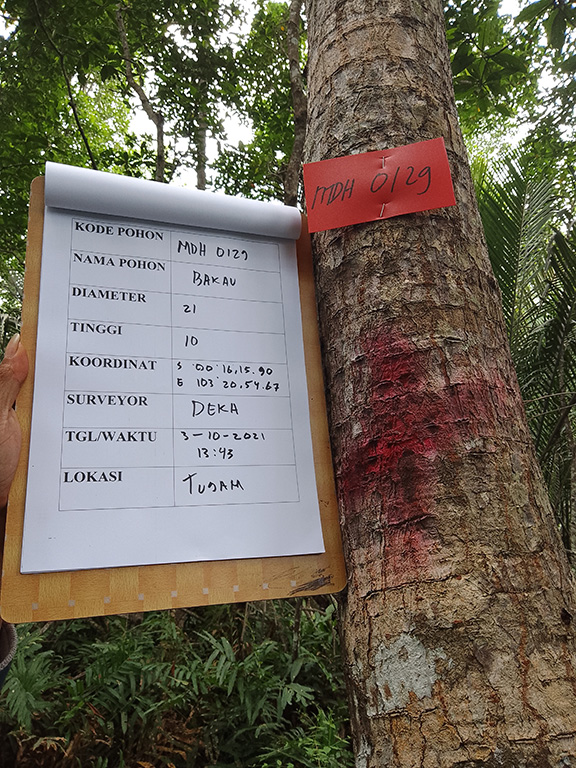 MDH 0129
KODE POHON MDH 0129
NAMA POHON BAKAU
DIAMETER 21
TINGGI 10
KOORDINAT S 00°16.15.90
E 103°20.54.67
SURVEYOR DEKA
TGL/WAKTU 3-10-2021
13:43
LOKASI TUJAM